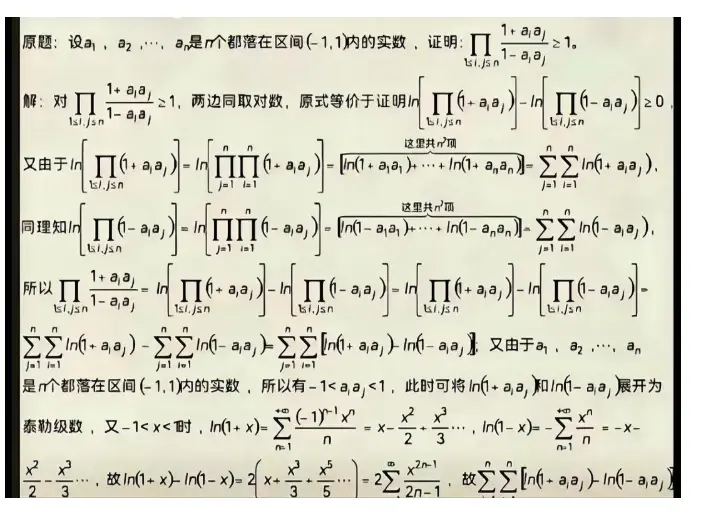 原题：设a₁，a₂，…，aₙ是n个都落在区间(-1,1)内的实数，证明：∏_{1≤i,j≤n} (1+aᵢaⱼ)/(1-aᵢaⱼ) ≥1。
解：对∏_{1≤i,j≤n} (1+aᵢaⱼ)/(1-aᵢaⱼ) ≥1，两边同取对数，原式等价于证明ln[∏_{1≤i,j≤n}(1+aᵢaⱼ)]-ln[∏_{1≤i,j≤n}(1-aᵢaⱼ)]≥0，
又由于ln[∏_{1≤i,j≤n}(1+aᵢaⱼ)]=ln[∏_{j=1}^{n}∏_{i=1}^{n}(1+aᵢaⱼ)]=[ln(1+a₁a₁)+…+ln(1+aₙaₙ)]（这里共n²项）=∑_{j=1}^{n}∑_{i=1}^{n}ln(1+aᵢaⱼ)，
同理知ln[∏_{1≤i,j≤n}(1-aᵢaⱼ)]=ln[∏_{j=1}^{n}∏_{i=1}^{n}(1-aᵢaⱼ)]=[ln(1-a₁a₁)+…+ln(1-aₙaₙ)]（这里共n²项）=∑_{j=1}^{n}∑_{i=1}^{n}ln(1-aᵢaⱼ)，
所以∏_{1≤i,j≤n} (1+aᵢaⱼ)/(1-aᵢaⱼ)=ln[∏_{1≤i,j≤n}(1+aᵢaⱼ)]-ln[∏_{1≤i,j≤n}(1-aᵢaⱼ)]=ln[∏_{1≤i,j≤n}(1+aᵢaⱼ)]-ln[∏_{1≤i,j≤n}(1-aᵢaⱼ)]=
∑_{j=1}^{n}∑_{i=1}^{n}ln(1+aᵢaⱼ)-∑_{j=1}^{n}∑_{i=1}^{n}ln(1-aᵢaⱼ)=∑_{j=1}^{n}∑_{i=1}^{n}[ln(1+aᵢaⱼ)-ln(1-aᵢaⱼ)]，又由于a₁，a₂，…，aₙ
是n个都落在区间(-1,1)内的实数，所以有-1<aᵢaⱼ<1，此时可将ln(1+aᵢaⱼ)和ln(1-aᵢaⱼ)展开为
泰勒级数，又-1<x<1时，ln(1+x)=∑_{n=1}^{+∞} (-1)^{n-1}xⁿ/n = x-x²/2+x³/3…，ln(1-x)=-∑_{n=1}^{+∞} xⁿ/n =-x-
x²/2-x³/3…，故ln(1+x)-ln(1-x)=2(x+x³/3+x⁵/5…)=2∑^{∞} x^{2n-1}/(2n-1)，故∑^{n}∑^{n}[ln(1+aᵢaⱼ)-ln(1-aᵢaⱼ)]